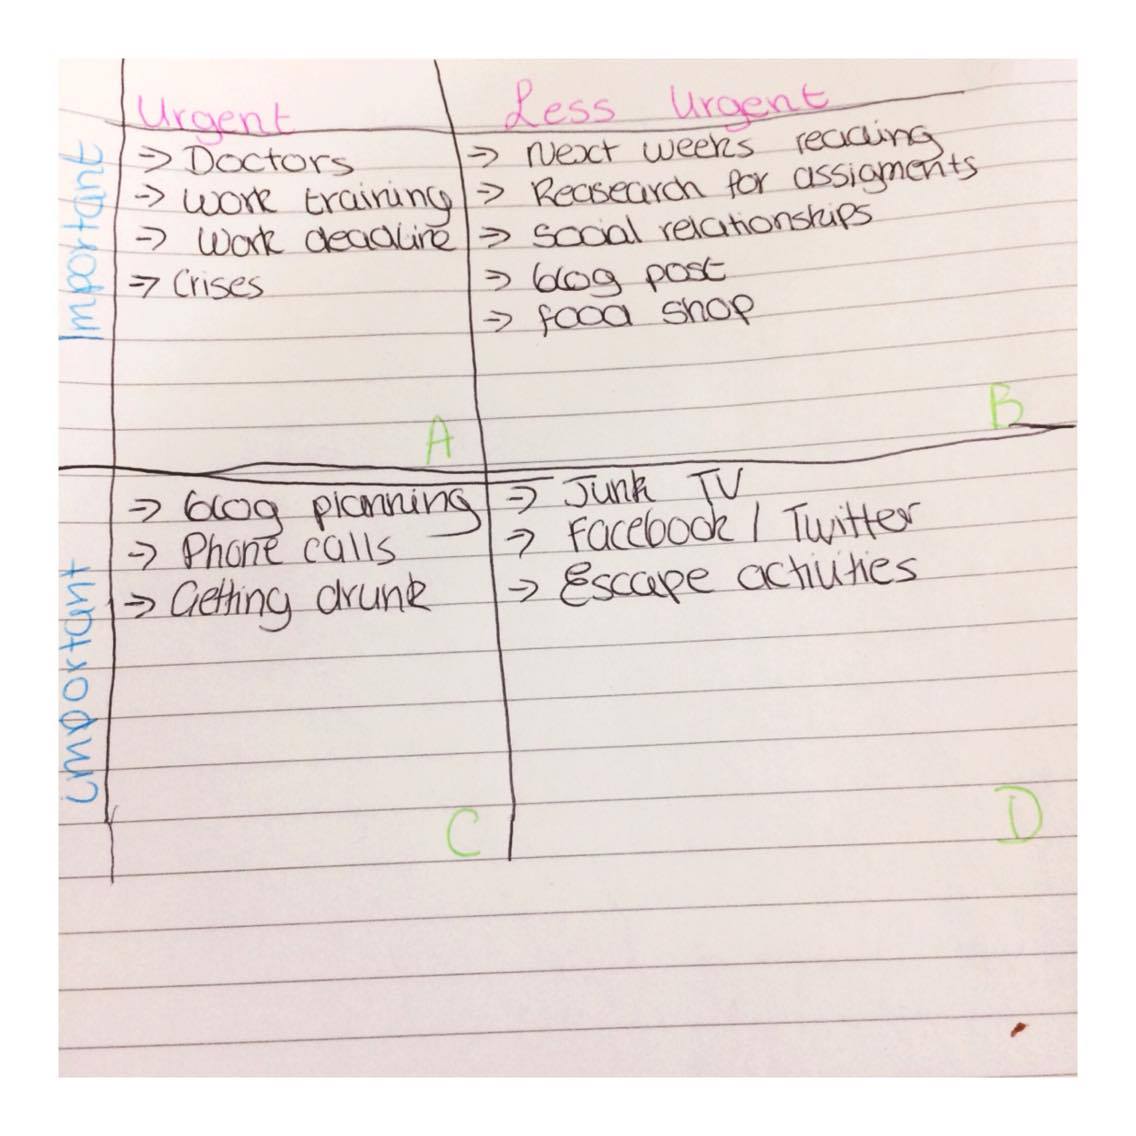 Urgent
Less Urgent
Important
=> Doctors
=> Work training
=> Work deadline
=> Crises
A
=> Next weeks reading
=> Reasearch for assigments
=> Social relationships
=> blog post
=> food shop
B
important
=> blog planning
=> Phone calls
=> Getting drunk
C
=> Junk TV
=> Facebook / Twitter
=> Escape activities
D